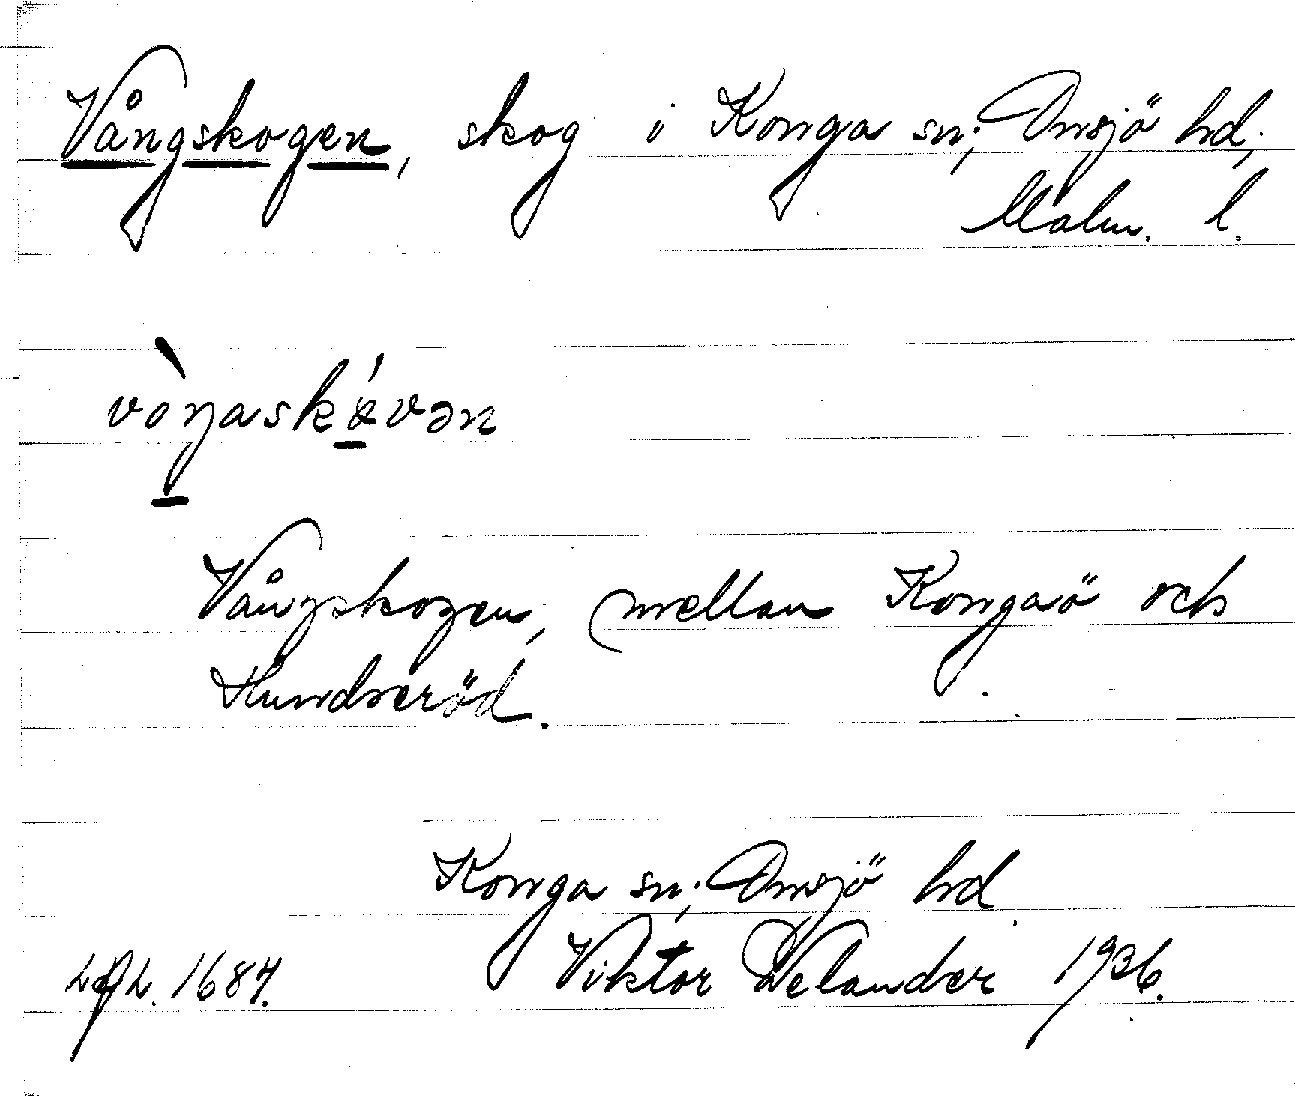 Vångskogen, skog i Konga sn; Onsjö hd,
Malm. l.
vòŋaskǻvən
Vångskogen, mellan Kongaö och
Hundseröd.
Konga sn; Onsjö hd
1684. Viktor Welander 1936.